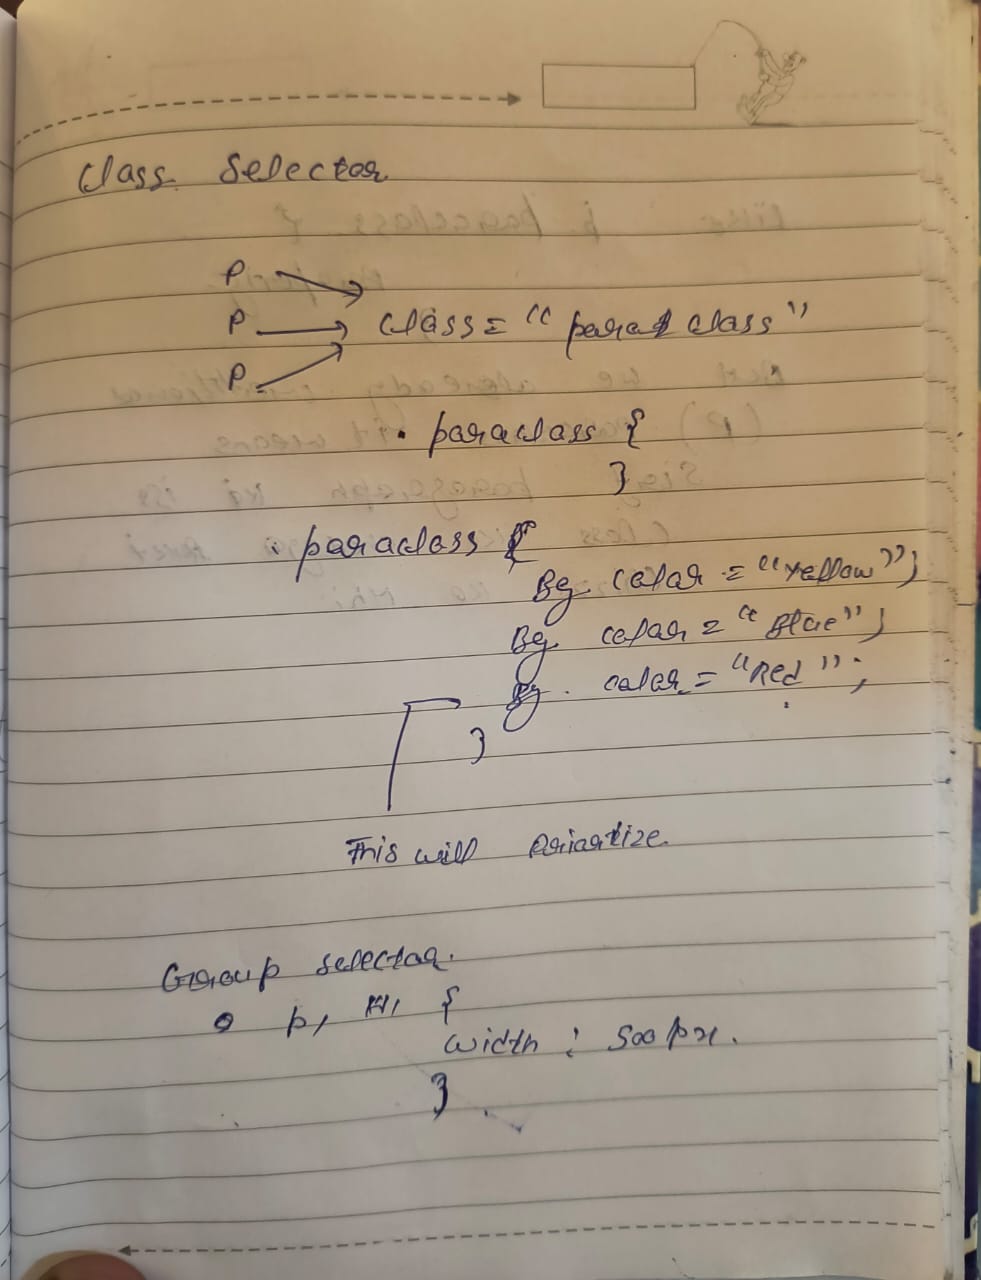 Class Selector
P
P class = "paraclass"
P
. paraclass {
}
. paraclass {
Bg. color = "Yellow";
Bg. color = "Blue";
Bg. color = "Red";
}
This will Prioritize.
Group selector.
p, H1, {
width : 500px.
}